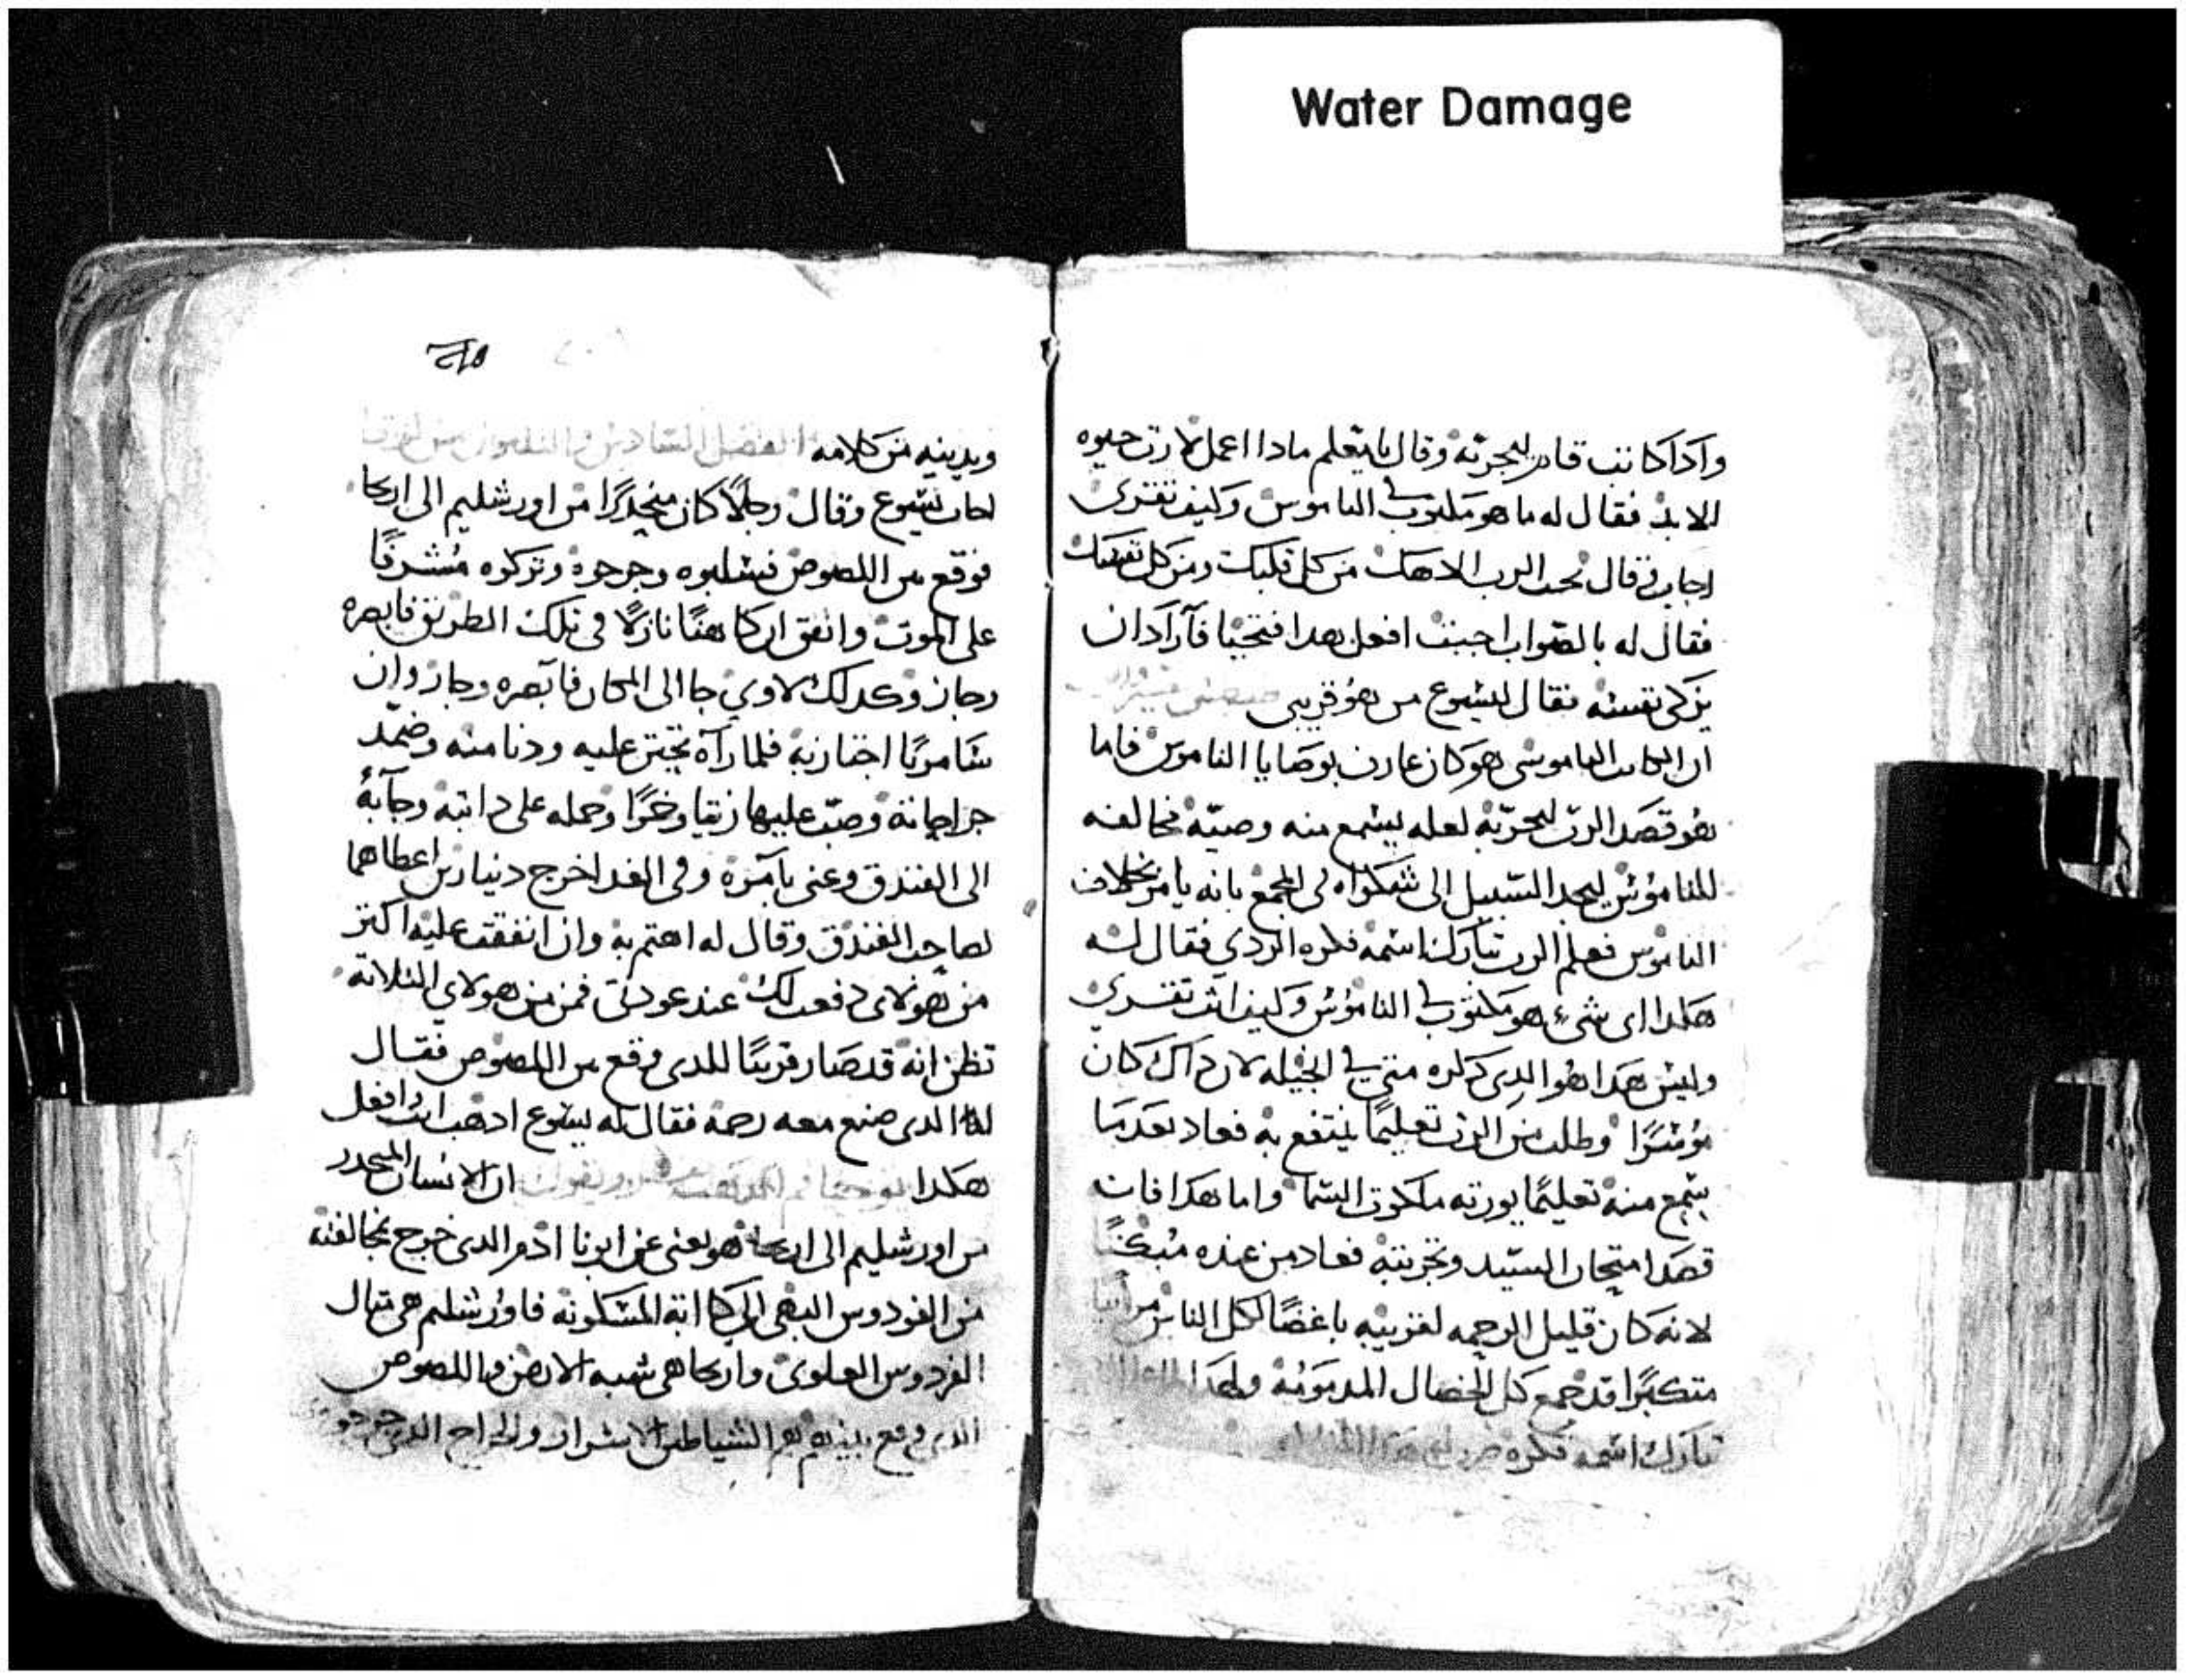 Water Damage
وادا كاتب قام ليجربه وقال يا معلم مادا اعمل لارت حيوه
الابد فقال له ما هو مكتوب في الناموس وكيف تقرى
اجاب وقال تحب الرب الاهك من كل قلبك ومن كل نفسك
فقال له بالصواب اجبت افعل هدا فتحيا فاراد ان
يزكى نفسه فقال ليسوع من هو قريبى
ان الكاتب الناموسى هو كان عارف بوصايا الناموس فاما
هو قصد الرب ليجربه لعله يسمع منه وصيه مخالفه
للناموس ليجد السبيل الى شكواه في المجمع بانه يامر بخلاف
الناموس فعلم الرب تبارك اسمه فكره الردي فقال له
هكدا اى شيء هو مكتوب في الناموس وكيف انت تقرى
وليس هدا هو الدى دكره متى في انجيله لان داك كان
موسرا وطلب من الرب تعليما ينتفع به فعاد بعد ما
سمع منه تعليما يورته ملكوت السما واما هدا فانه
قصد امتحان السيد وتجربته فعاد من عنده مبكتا
لانه كان قليل الرحمه لقريبه باغضا لكل الناس
متكبرا قد جمع كل الخصال المدمومه ولهدا
تبارك اسمه فكره
ويدينه من كلامه الفصل السادس والتلتون من لوقا
اجاب يسوع وقال رجلا كان منحدرا من اورشليم الى اريحا
فوقع بين اللصوص فسلبوه وجرحوه وتركوه مشرفا
على الموت واتفق ان كاهنا نازلا فى تلك الطريق فابصره
وجاز وكدلك لاوي جا الى المكان فابصره وجاز وان
سامريا اجتاز به فلما رآه تحنن عليه ودنا منه وضمد
جراحاته وصب عليها زيتا وخمرا وحمله على دابته وجا به
الى الفندق وعنى بامره وفى الغد اخرج دينارين اعطاهما
لصاحب الفندق وقال له اهتم به وان انفقت عليه اكتر
من هولاى دفعت لك عند عودتى فمن من هولاي التلاته
تظن انه قد صار قريبا للدى وقع بين اللصوص فقال
له الدى صنع معه رحمه فقال له يسوع ادهب انت وافعل
هكدا ان الانسان المنحدر
من اورشليم الى اريحا هو يعنى عن ابونا ادم الدى خرج بمخالفته
من الفردوس البهى الى كابة المسكونه فاورشليم هى تبال
الفردوس العلوى واريحا هى شبه الارض واللصوص
الدى وقع بينهم هم الشياطين الاشرار والجراح الدى جرحوه